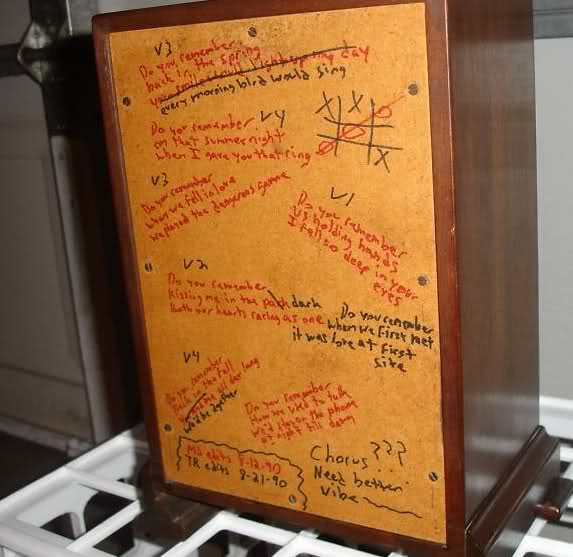 V3
Do you remember
back in the spring
your smile could light up my day
every morning bird would sing
V4
Do you remember
on that summer night
when I gave you that ring
X X O
O
O X
V3
Do you remember
when we fell in love
we played the dangerous game
V1
Do you remember
us holding hands
I fell so deep in your
eyes
V2
Do you remember
kissing me in the park dark
both our hearts racing as one
Do you remember
when we first met
it was love at first
site
V4
Do you remember
back in the fall
all day long
we'd be together
Do you remember
how we used to talk
We'd stay on the phone
at night till dawn
MJ edits 8-12-90
TR edits 8-21-90
Chorus???
Need better
vibe